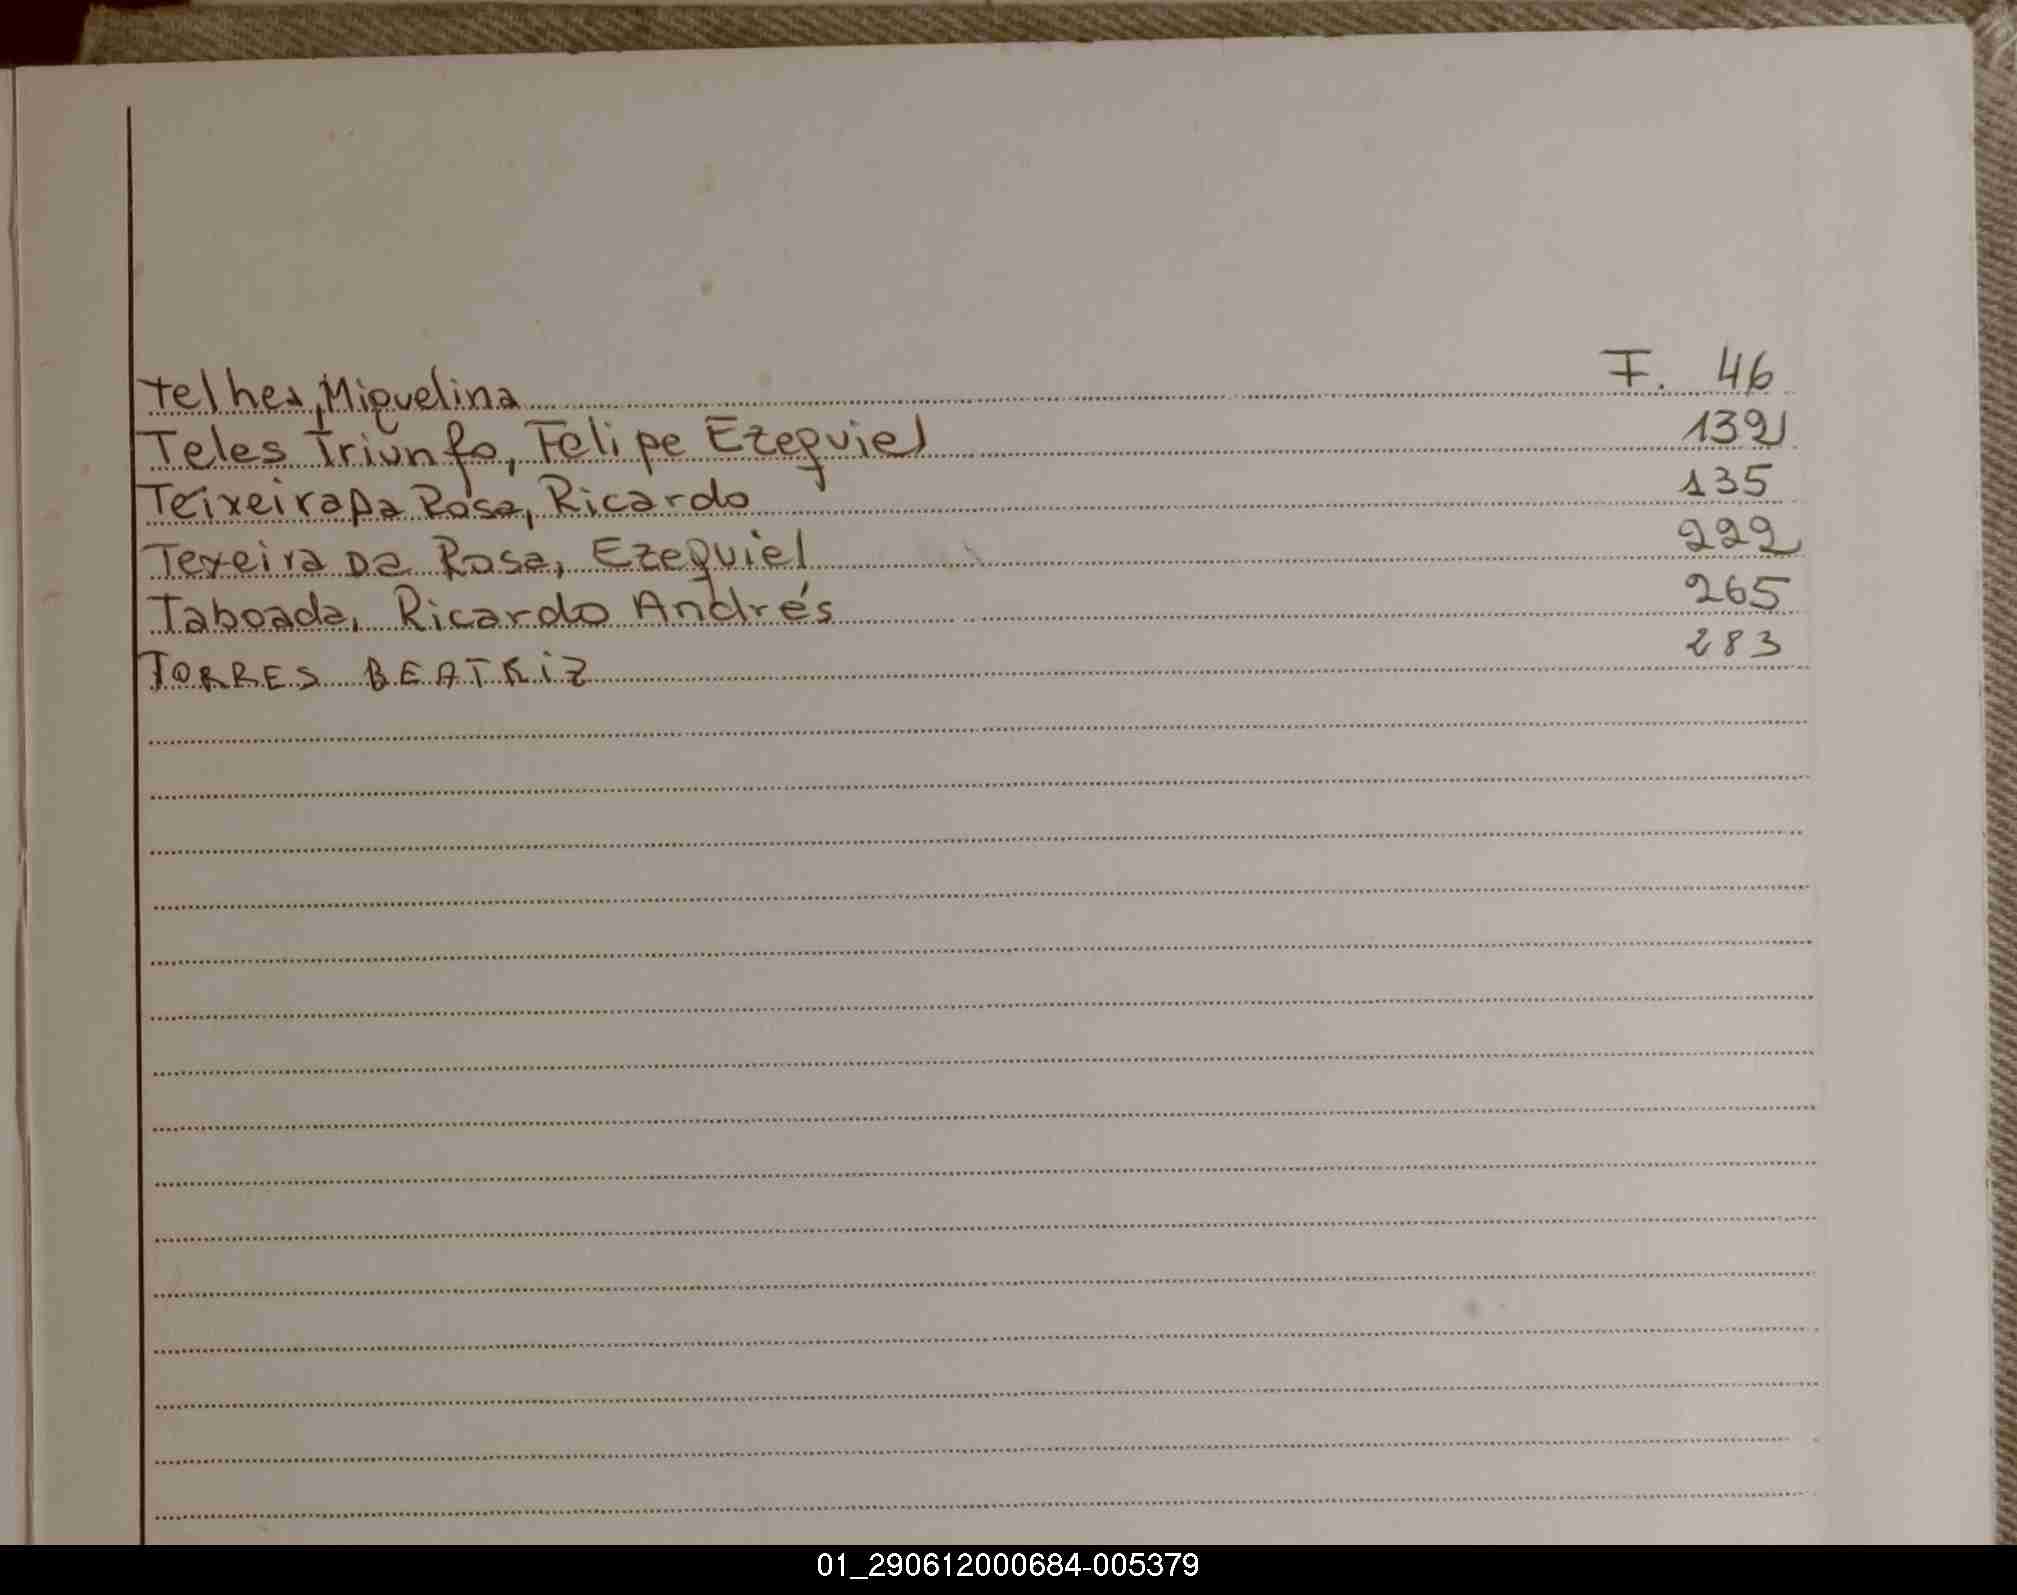 Telhes, Miquelina F. 46
Teles Triunfo, Felipe Ezequiel 132
Teixeira Da Rosa, Ricardo 135
Texeira Da Rosa, Ezequiel 222
Taboada, Ricardo Andrés 265
TORRES BEATRiZ 283
01_290612000684-005379